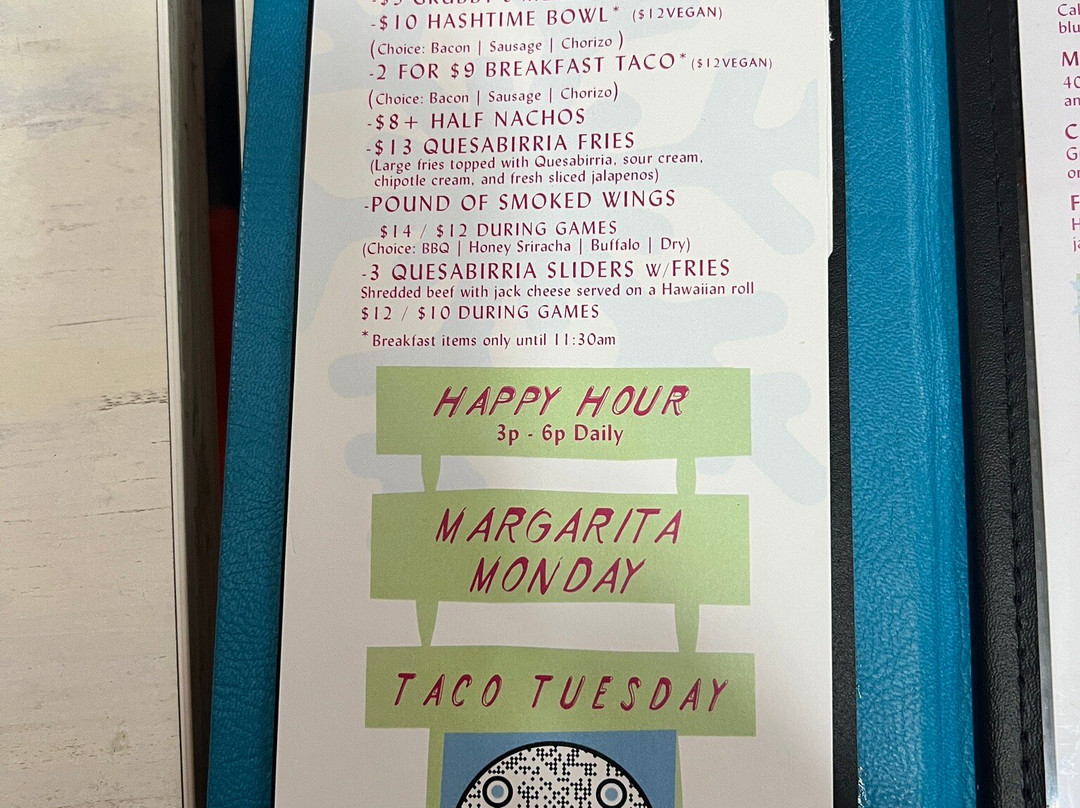 -$10 HASHTIME BOWL* ($12VEGAN)
(Choice: Bacon | Sausage | Chorizo )
-2 FOR $9 BREAKFAST TACO* ($12VEGAN)
(Choice: Bacon | Sausage | Chorizo)
-$8+ HALF NACHOS
-$13 QUESABIRRIA FRIES
(Large fries topped with Quesabirria, sour cream,
chipotle cream, and fresh sliced jalapenos)
-POUND OF SMOKED WINGS
$14 / $12 DURING GAMES
(Choice: BBQ | Honey Sriracha | Buffalo | Dry)
-3 QUESABIRRIA SLIDERS w/FRIES
Shredded beef with jack cheese served on a Hawaiian roll
$12 / $10 DURING GAMES
*Breakfast items only until 11:30am
HAPPY HOUR
3p - 6p Daily
MARGARITA
MONDAY
TACO TUESDAY